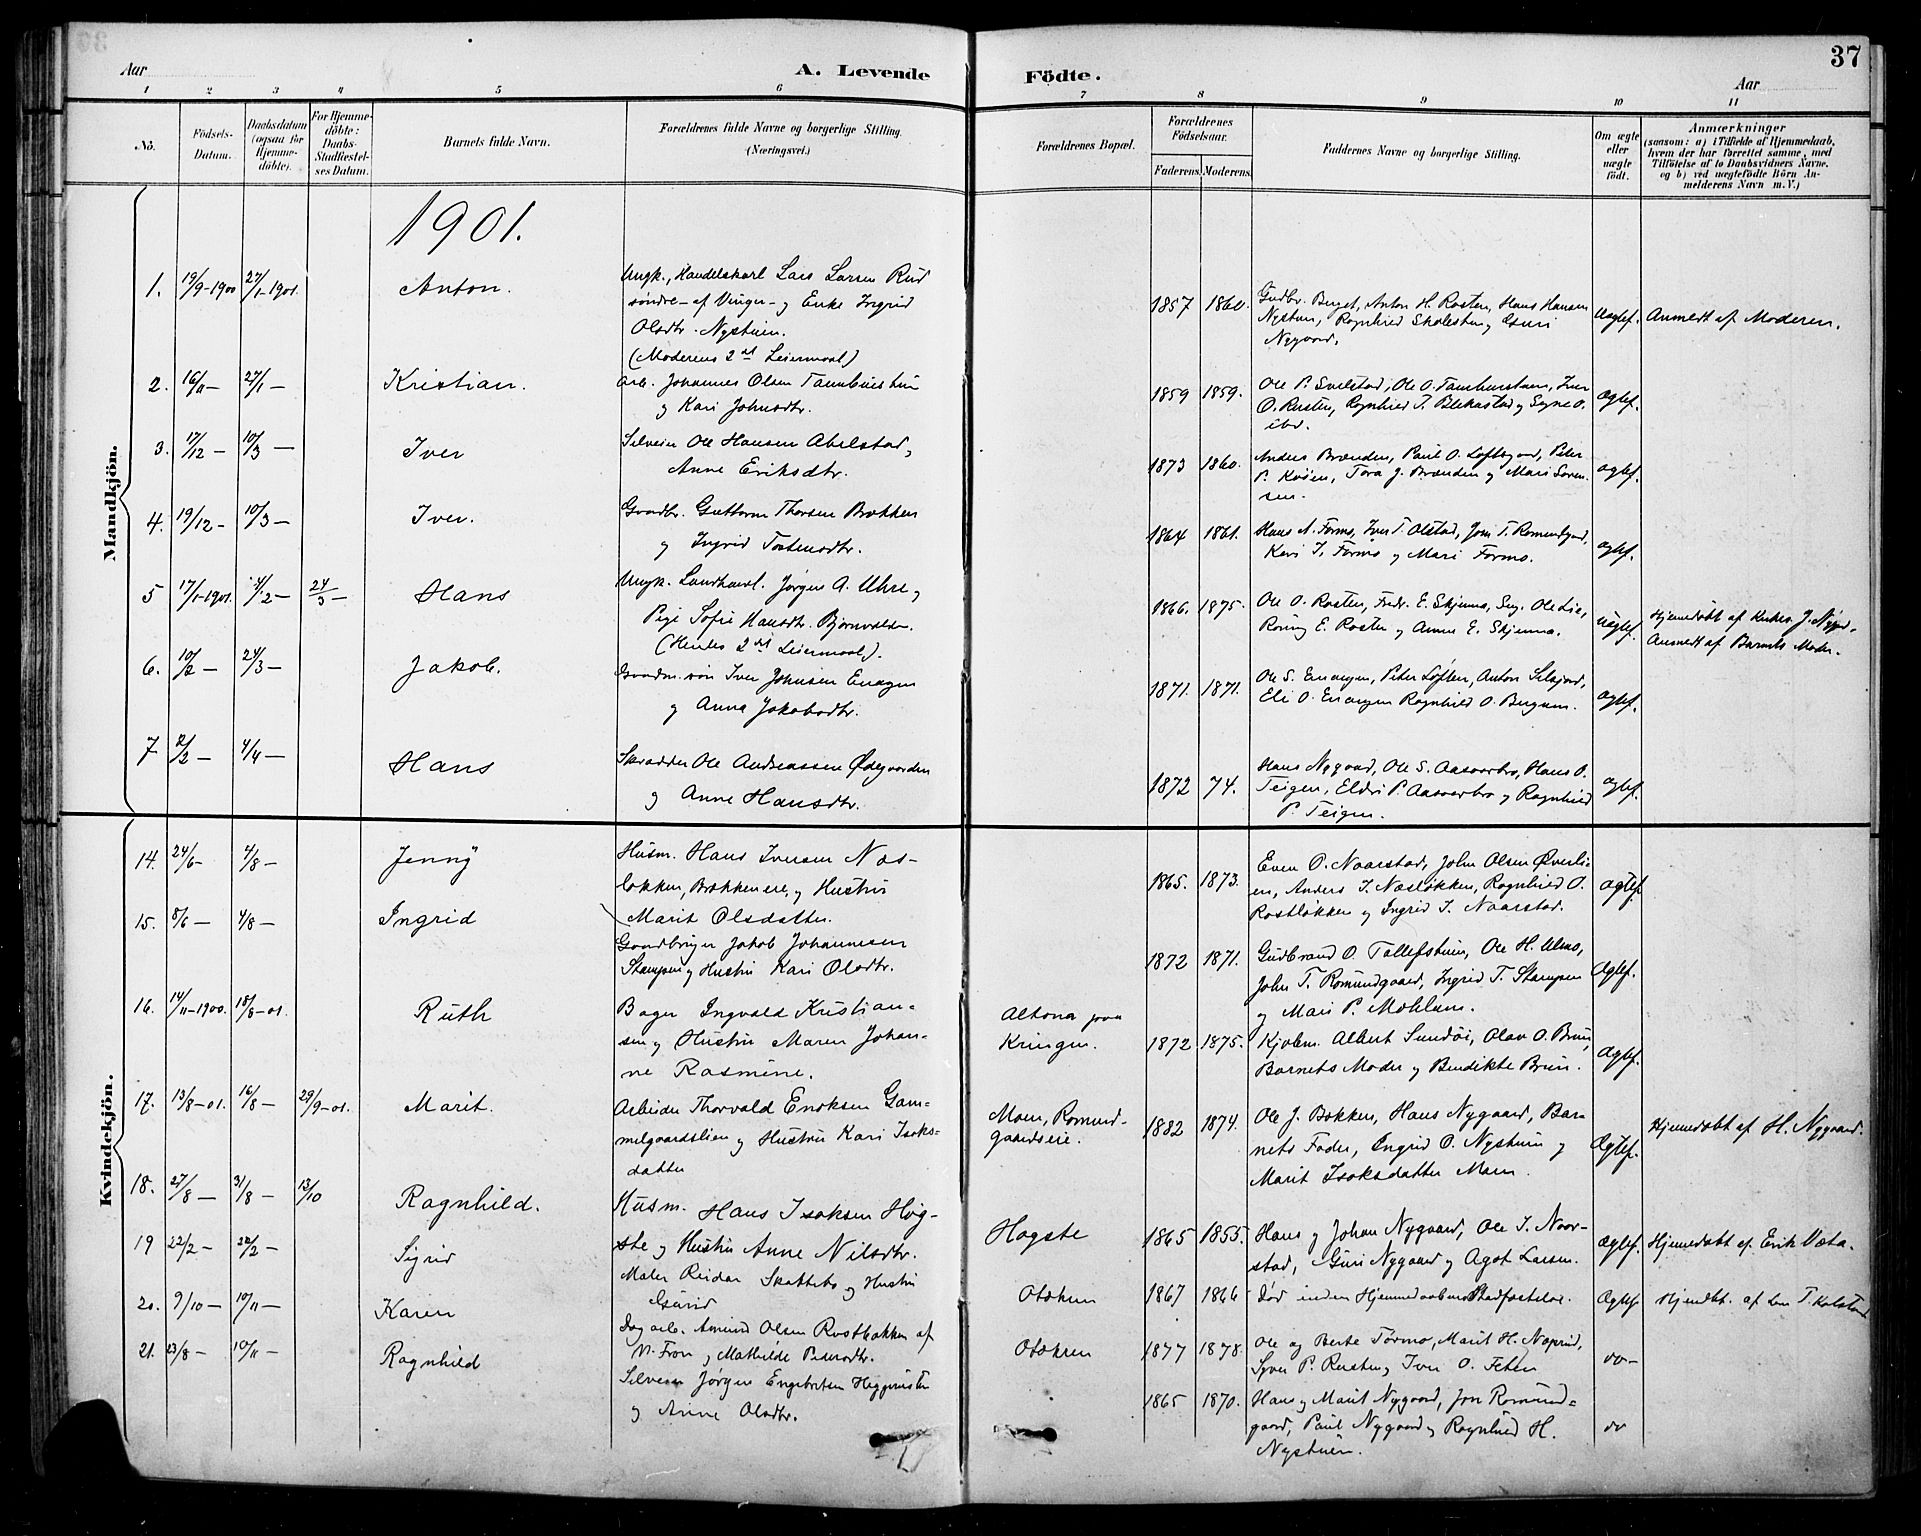 37
Aar
A. Levende
Födte.
Aar
1 2 3 4 5 6 7 8 9 10 11
No.
Födsels-
Datum.
Daabsdatum
(ogsaa for
Hjemme-
döbte).
For Hjemme-
döbte:
Daabs-
Stadfæstel-
ses Datum.
Barnets fulde Navn.
Forældrenes fulde Navne og borgerlige Stilling.
(Næringsvei.)
Forældrenes Bopæl.
Forældrenes
Födselsaar.
Faderens. Moderens.
Faddernes Navne og borgerlige Stilling.
Om ægte
eller
uægte
født.
Anmærkninger
(saasom: a) i Tilfælde af Hjemmedaab,
hvem der har forrettet samme, med
Tilföielse af to Daabsvidners Navne.
og b) ved uægtefödte Börn An-
melderens Navn m. V.)
Mandkjön.
1901.
1. 19/9-1900 27/1-1901. Anton.
Ungk., Handelskarl Lars Larsen Rud
søndre - af Vinger - og Enke Ingrid
Olsdtr. Nystuen.
(Moderens 2det Leiermaal)
1857 1860.
Gudbr. Berget, Anton H. Rosten, Hans Hansen
Nystuen, Ragnhild Skolestuen, Guri
Nygaard.
Uægtef. Anmeldt af Moderen.
2. 16/11 - 27/1 - Kristian.
Arb. Johannes Olsen
og Kari Johnsdtr.
1859 1859.
Ole P. Selstad, Ole O.
O. Rusten, Ragnhild T. og Signe O.
ibd.
Ægtef.
3. 17/12 - 10/3 - Iver
Selveier Ole Hansen Abelstad,
Anne Eriksdtr.
1873 1860.
Anders Brænden, Paul O. Loftsgard, Peter
P. Tora J. Brænden og Mari Soren-
sen.
ægtef.
4. 19/12 - 10/3 - Iver.
Guttorm Thorsen Brekken
og Ingrid
1864 1861.
Hans A. Formo, Iver T. Olstad, Jon T. Romundgard,
Kari I. Formo og Mari Formo.
ægtef.
5 17/1-1901. 4/2 - 24/3 - Hans
Ungk. Landhandl. Jørgen A. Uhre,
Pige Sofie Hansdtr. Bjørnvolden.
(Hendes 2det Leiermaal).
1866. 1875.
Ole O. Rosten, Fredr. E. Skjenna, Ole Lie,
E. Rosten og Anne E. Skjenna.
uægtef. Hjemmedøbt af
Anmeldt af Barnets Moder.
6. 10/2 - 24/3 - Jakob.
Iver Johnsen
og Anna Jakobsdtr.
1871. 1871.
Ole S. Peter Løften, Anton
Eli O. Ragnhild O. Bergum.
ægtef.
7 2/2 - 4/4 - Hans
Skrædder Ole Andreassen Ødegaarden
og Anne Hansdtr.
1872 74.
Hans Nygaard, Ole S. Aasaarbro, Hans O.
Teigen, Eldri P. Aasaarbro og Ragnhild
P. Teigen.
ægtef.
Kvindekjön.
14. 24/6 - 4/8 - Jenny
Husm. Hans Iversen Næs-
løkken, Brekkeneie, og Hustru
Marit Olsdatter.
1865. 1873.
Even O. Naarstad, John Olsen Øverli-
en, Anders I. Næsløkken, Ragnhild O.
Rostløkken og Ingrid I. Naarstad.
ægtef.
15. 8/6 - 4/8 - Ingrid
Gaardbruger Jakob Johannesen
Stampen og Hustru Kari Olsdtr.
1872 1871.
Gudbrand O. Tollefstuen, Ole H. Ulmo,
John T. Romundgaard, Ingrid T. Stampen
og Mari P. Mohlum.
Ægtef.
16. 14/11-1900. 18/8-01. Ruth
Bager Ingvald Kristian-
sen og Hustru Maren Johan-
ne Rasmine.
Altona paa
Kringen.
1872 1875.
Kjøbm. Albert Sundøi, Olav O. Brun,
Barnets Moder og Bendikte Brun.
Ægtef.
17. 13/8-01. 16/8 - 29/9-01. Marit.
Arbeider Thorvald Eriksen Gam-
melgaardslien og Hustru Kari Isaks-
datter
Moen, Romund-
gaardseie.
1882 1874.
Ole J. Bakken, Hans Nygaard, Bar-
nets Fader, Ingrid O. Nystuen og
Marit Isaksdatter Moen.
Ægtef. Hjemmedøbt af H. Nygaard.
18. 27/8 - 31/8 - 13/10 Ragnhild.
Husm. Hans Isaksen Høg-
ste og Hustru Anne Nilsdtr.
Høgste
1865 1855.
Hans og Johan Nygaard, Ole I. Naar-
stad, Guri Nygaard og Agot Larsen.
ægtef. Hjemmedøbt af Erik Væta.
19 22/2 - 22/2 - Sigrid
Maler Reidar Skattebo og Hustru
Guri
Otækren
1867 1866
Død inden Hjemmedaabens Stadfæstelse.
Ægtef. Hjmdbt. af T. Kolstad
20. 9/10 - 10/11 - Karen
Dagarb. Amund Olsen Rustbakken af
N. Fron og Mathilde Pedersdtr.
Otækren
1877 1878.
Ole og Berte Formo, Marit H. Næprud,
Syver P. Rusten og Iver O. Feten
do -
21. 23/8 - 10/11 - Ragnhild
Selveier Jørgen Engebretsen
og Anne Olsdtr.
1865 1870.
Hans og Marit Nygaard, Jon Romund-
gaard, Paul Nygaard og Ragnhild H.
Nystuen.
do